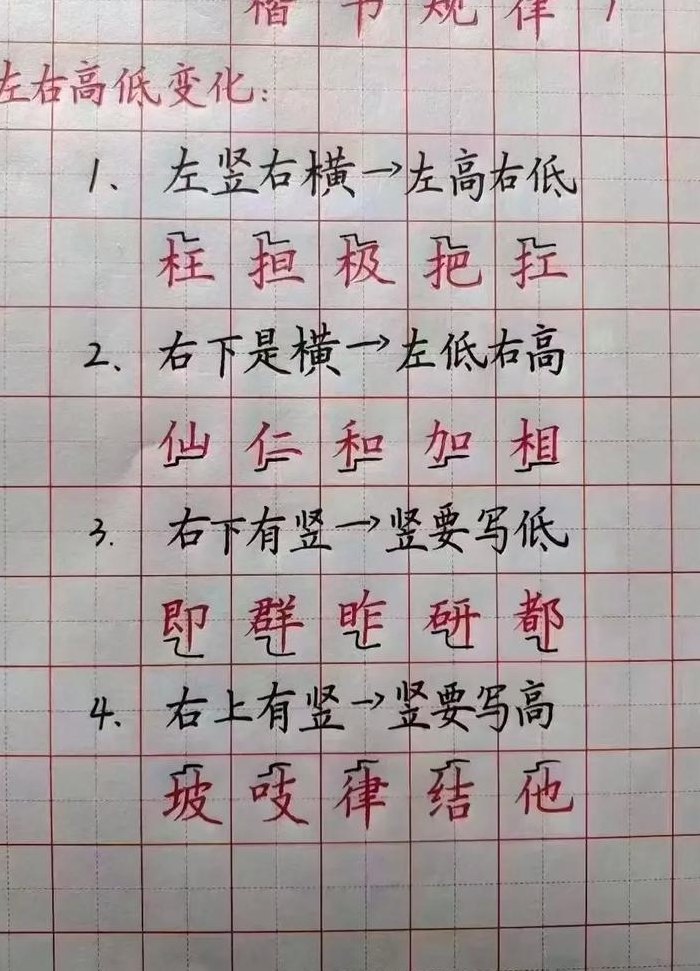 楷书规律1
左右高低变化：
1、左竖右横→左高右低
柱 担 极 把 扛
2、右下是横→左低右高
仙 仁 和 加 相
3. 右下有竖→竖要写低
即 群 昨 研 都
4、右上有竖→竖要写高
坡 吱 律 结 他